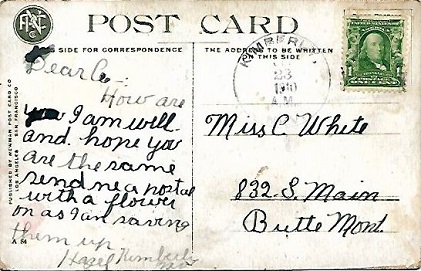 POST CARD
SIDE FOR CORRESPONDENCE
THE ADDRESS TO BE WRITTEN
IN THIS SIDE
KIMBERL
23
1910
A.M.
Dear C
How are
you I am well
and hope you
are the same
send me a postal
with a flower
on as I am saving
them up
Hazel Kimberl
Miss C White
832 S. Main
Butte Mont.
PUBLISHED BY NEWMAN POST CARD CO
LOS ANGELES SAN FRANCISCO